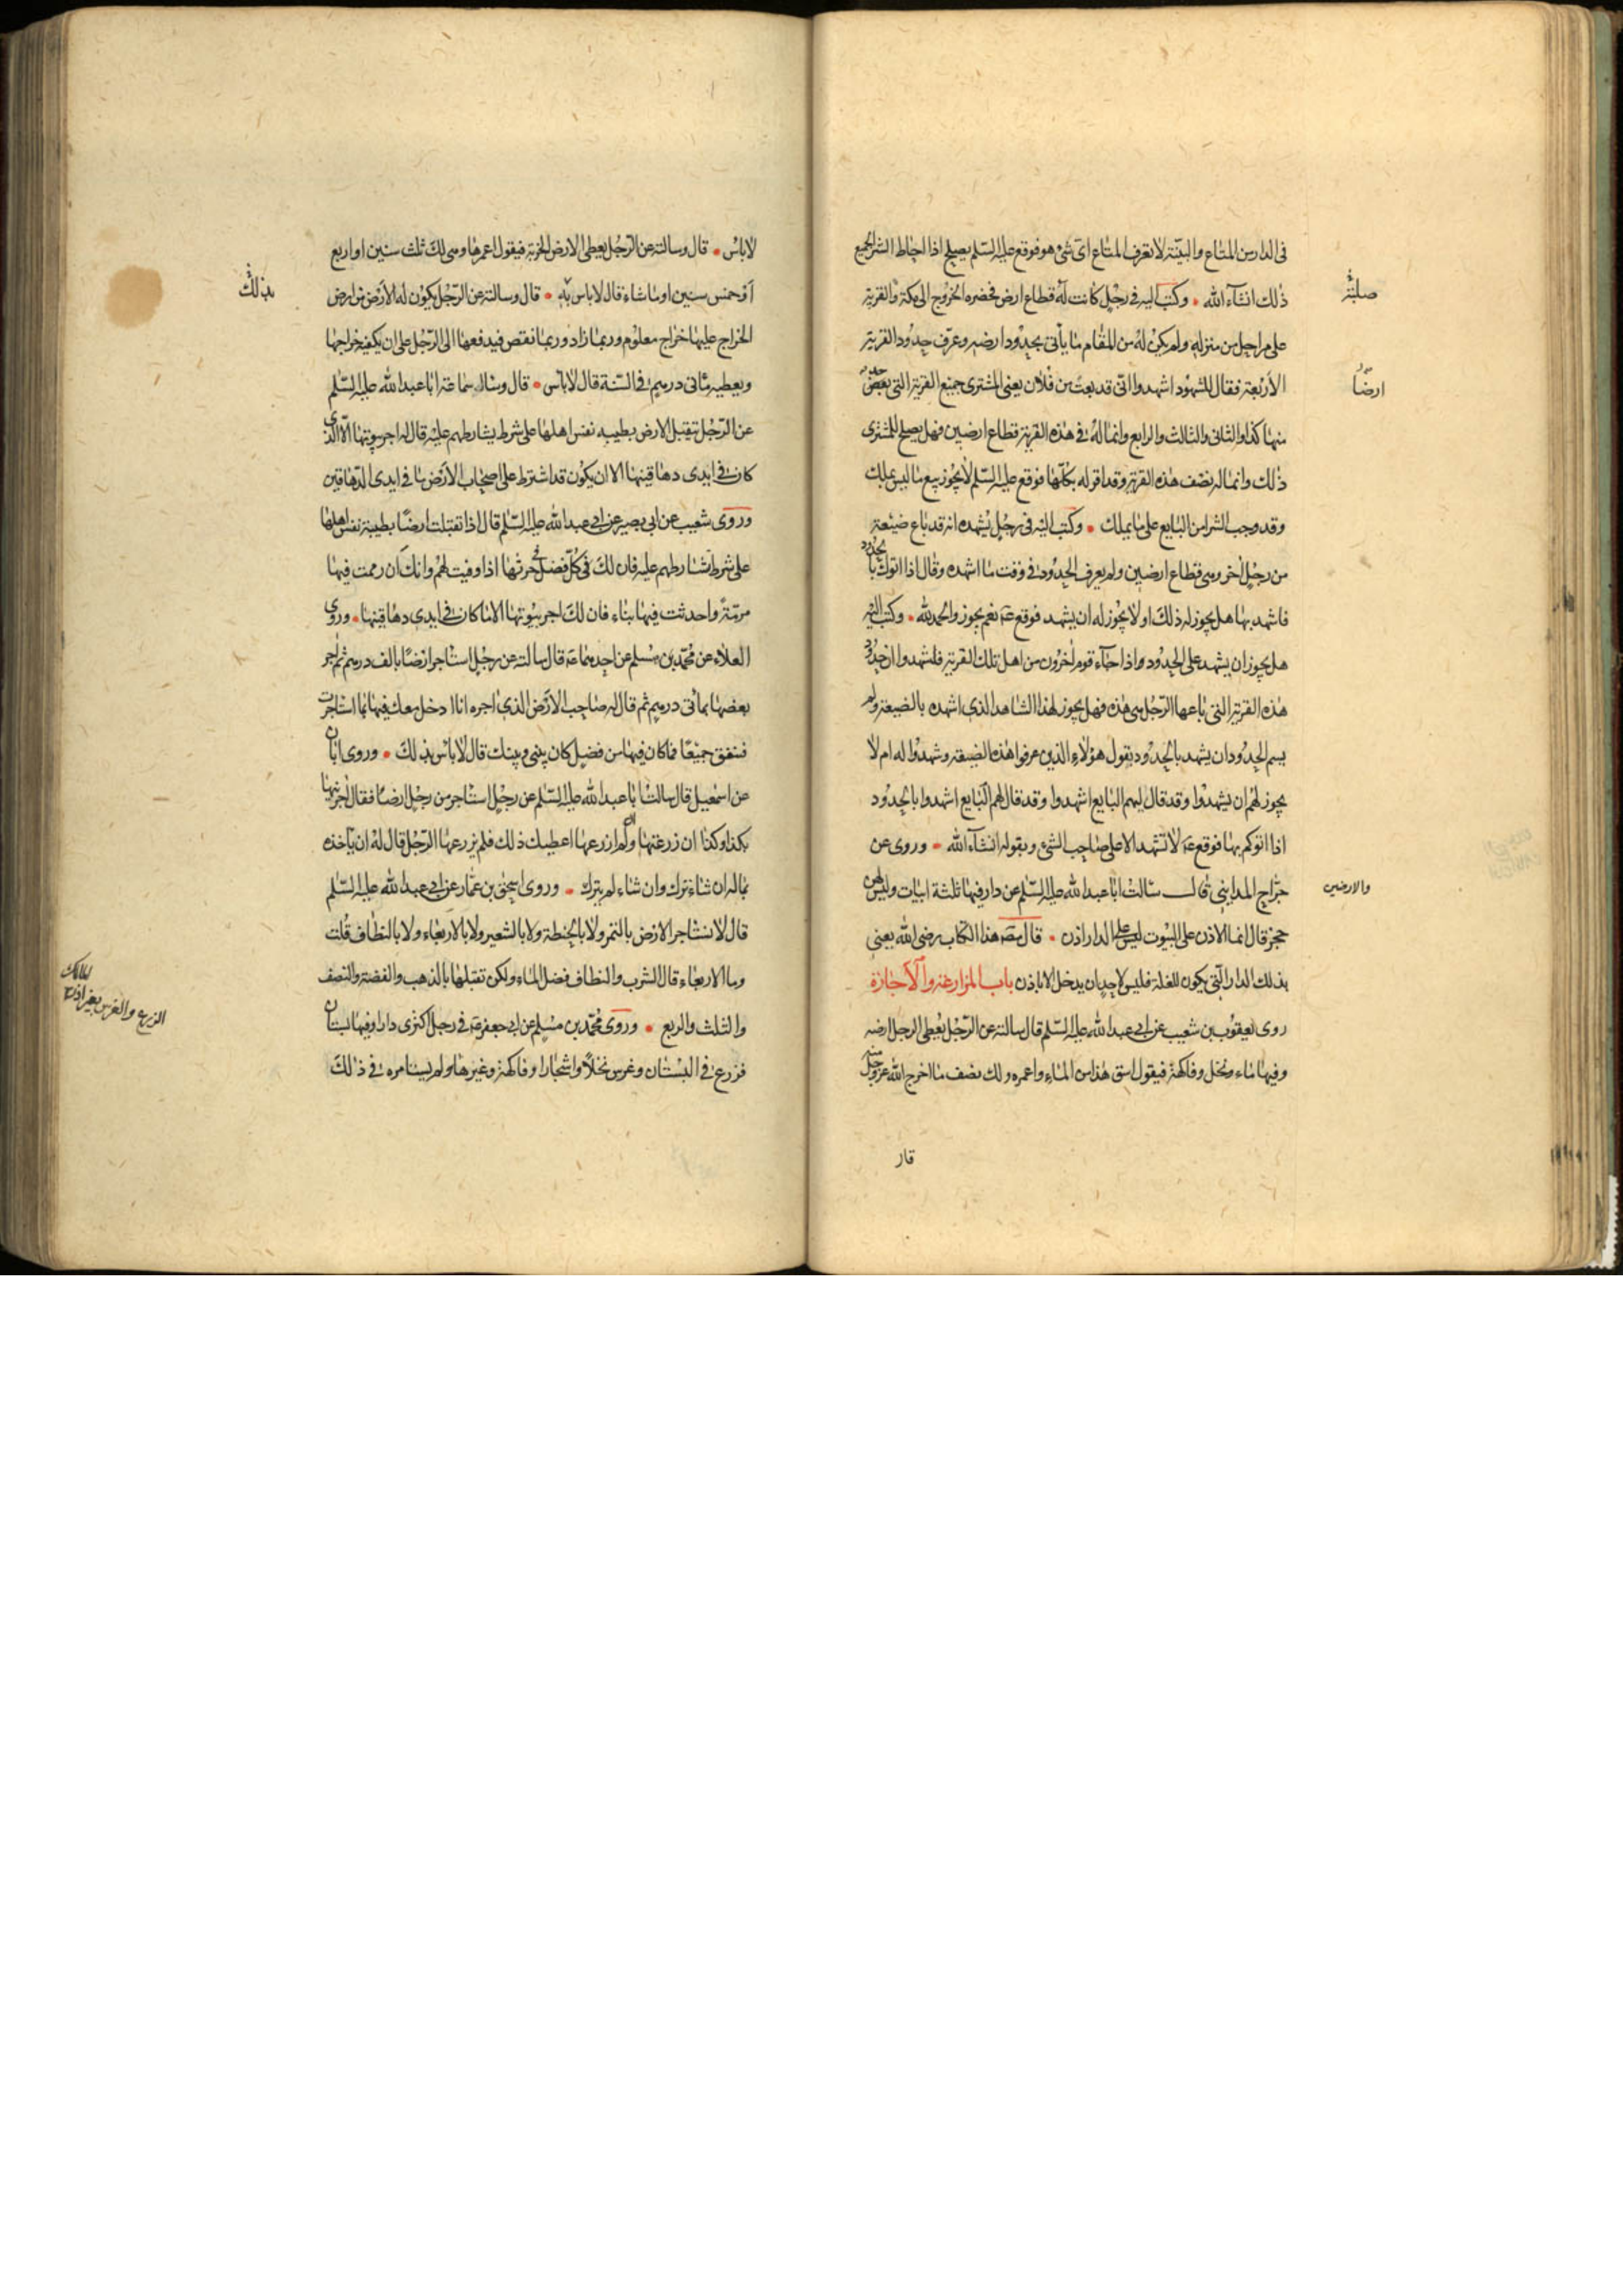 فى الدار من المتاع والبينة لا تعرف المتاع اى شئ هو فوقع عليه السلم يصلح اذا احاط الشرا لجميع
ذلك انشاء الله • وكتب اليه فى رجل كانت له قطاع ارض فحضره الخروج الى مكة والقرية
على مراحل من منزله ولم يكن له من المقام ما يأتى بحدود ارضه وعرف حدود القرية
الأربعة فقال للشهود اشهدوا انى قد بعت من فلان يعنى المشترى جميع القرية التى حد
منها كذا والثانى والثالث والرابع وانما له فى هذه القرية قطاع ارضين فهل يصلح للمشترى
ذلك وانما له نصف هذه القرية وقد اقر له بكلها فوقع عليه السلم لا يجوز بيع ما ليس بملك
وقد وجب الشرا من البايع على ما يملك • وكتب اليه فى رجل يشهده انه قد باع ضيعته
من رجل اخر وهى قطاع ارضين ولم يعرف الحدود فى وقت ما اشهده وقال اذا اتوك بالحدود
فاشهد بها هل يجوز له ذلك او لا يجوز له ان يشهد فوقع ع نعم يجوز والحمد لله • وكتب اليه
هل يجوز ان يشهد على الحدود واذا جاء قوم اخرون من اهل تلك القرية فشهدوا ان حدود
هذه القرية التى باعها الرجل هى هذه فهل يجوز لهذا الشاهد الذى اشهده بالضيعة ولم
يسم الحدود ان يشهد بالحدود بقول هؤلاء الذين عرفوا هذه الضيعة وشهدوا له ام لا
يجوز لهم ان يشهدوا وقد قال لهم البايع اشهدوا وقد قال لهم البايع اشهدوا بالحدود
اذا اتوكم بها فوقع ع لا تشهد الا على صاحب الشئ وبقوله انشاء الله • وروى عن
جراح المداينى قال سالت ابا عبد الله عليه السلم عن دار فيها ثلثة ابيات وليس لهن
حجز قال انما الاذن على البيوت ليس على الدار اذن • قال مص هذا الكتاب رضى الله يعنى
بذلك الدار التى يكون للغلة فليس لاحد ان يدخل الا باذن باب المزارعة والاجازة
روى يعقوب بن شعيب عن ابى عبد الله عليه السلم قال سالته عن الرجل يعطى الرجل ارضه
وفيها ماء ونخل وفاكهة فيقول اسق هذا من الماء واعمره ولك نصف ما اخرج الله عز وجل منه
صلبة
ارضا
والارضين
قال
لا بأس • قال وسالته عن الرجل يعطى الارض الخربة فيقول اعمرها وهى لك ثلث سنين او اربع
او خمس سنين او ما شاء قال لا باس به • قال وسالته عن الرجل يكون له الأرض من ارض
الخراج عليها خراج معلوم وربما زاد وربما نقص فيدفعها الى الرجل على ان يكفيه خراجها
ويعطيه مأتى درهم فى السنة قال لا بأس • قال وسأله سماعة ابا عبد الله عليه السلم
عن الرجل تقبل الارض بطيبه نفس اهلها على شرط يشارطهم عليه قال له اجر بيوتها الا الذى
كان فى ايدى دهاقينها الا ان يكون قد اشترط على اصحاب الأرض ما فى ايدى الدهاقين
وروى شعيب عن ابى بصير عن ابى عبد الله عليه السلم قال اذا تقبلت ارضا بطيبة نفس اهلها
على شرط تشارطهم عليه فان لك فى كل فضل حرثها اذا وفيت لهم وانك ان رممت فيها
مرمة واحدثت فيها بناء فان لك اجر بيوتها الا ما كان فى ايدى دهاقينها • وروى
العلاء عن محمد بن مسلم عن احدهما ع قال سالته عن رجل استاجر ارضا بالف درهم ثم اجر
بعضها بمأتى درهم ثم قال له صاحب الأرض الذى اجره انا ادخل معك فيها بما استاجرت
فننفق جميعا فما كان فيها من فضل كان بينى وبينك قال لا بأس بذلك • وروى ابان
عن اسمعيل قال سالت ابا عبد الله عليه السلم عن رجل استاجر من رجل ارضا فقال اجرنيها
بكذا وكذا ان زرعتها او لم ازرعها اعطيك ذلك فلم يزرعها الرجل قال له ان يأخذه
بماله ان شاء ترك وان شاء لم يترك • وروى اسحق بن عمار عن ابى عبد الله عليه السلم
قال لا تستاجر الارض بالتمر ولا بالحنطة ولا بالشعير ولا بالاربعاء ولا بالنطاف قلت
وما الاربعاء قال الشرب والنطاف فضل الماء ولكن تقبلها بالذهب والفضة والنصف
والثلث والربع • وروى محمد بن مسلم عن ابى جعفر ع فى رجل اكترى دارا وفيها بستان
فزرع فى البستان وغرس نخلا واشجارا وفاكهة وغيرها ولم يستامره فى ذلك
بذلك
الزرع والغرس بغير اذن